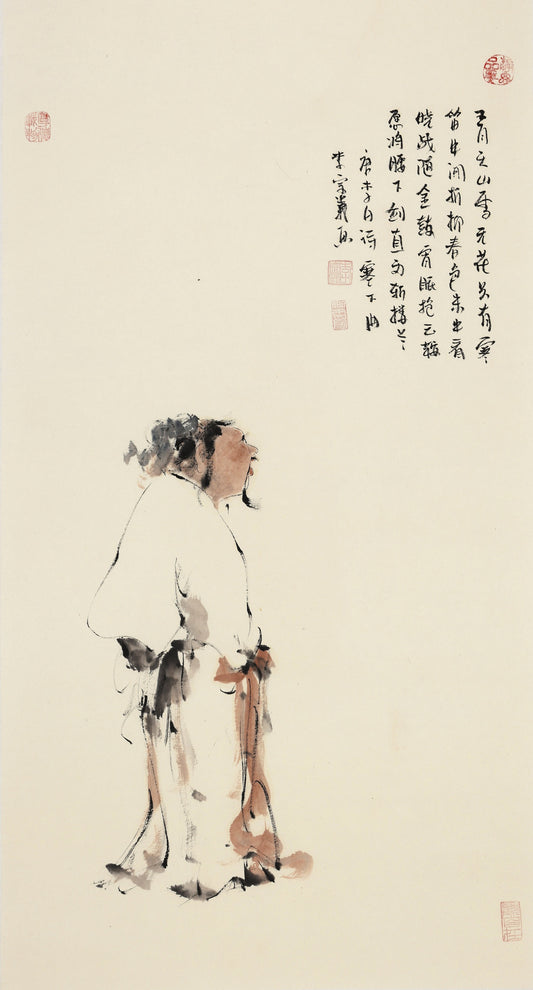 五月天山雪无花只有寒
笛中闻折柳春色未曾看
晓战随金鼓宵眠抱玉鞍
愿将腰下剑直为斩楼兰
唐李白诗塞下曲
李宗